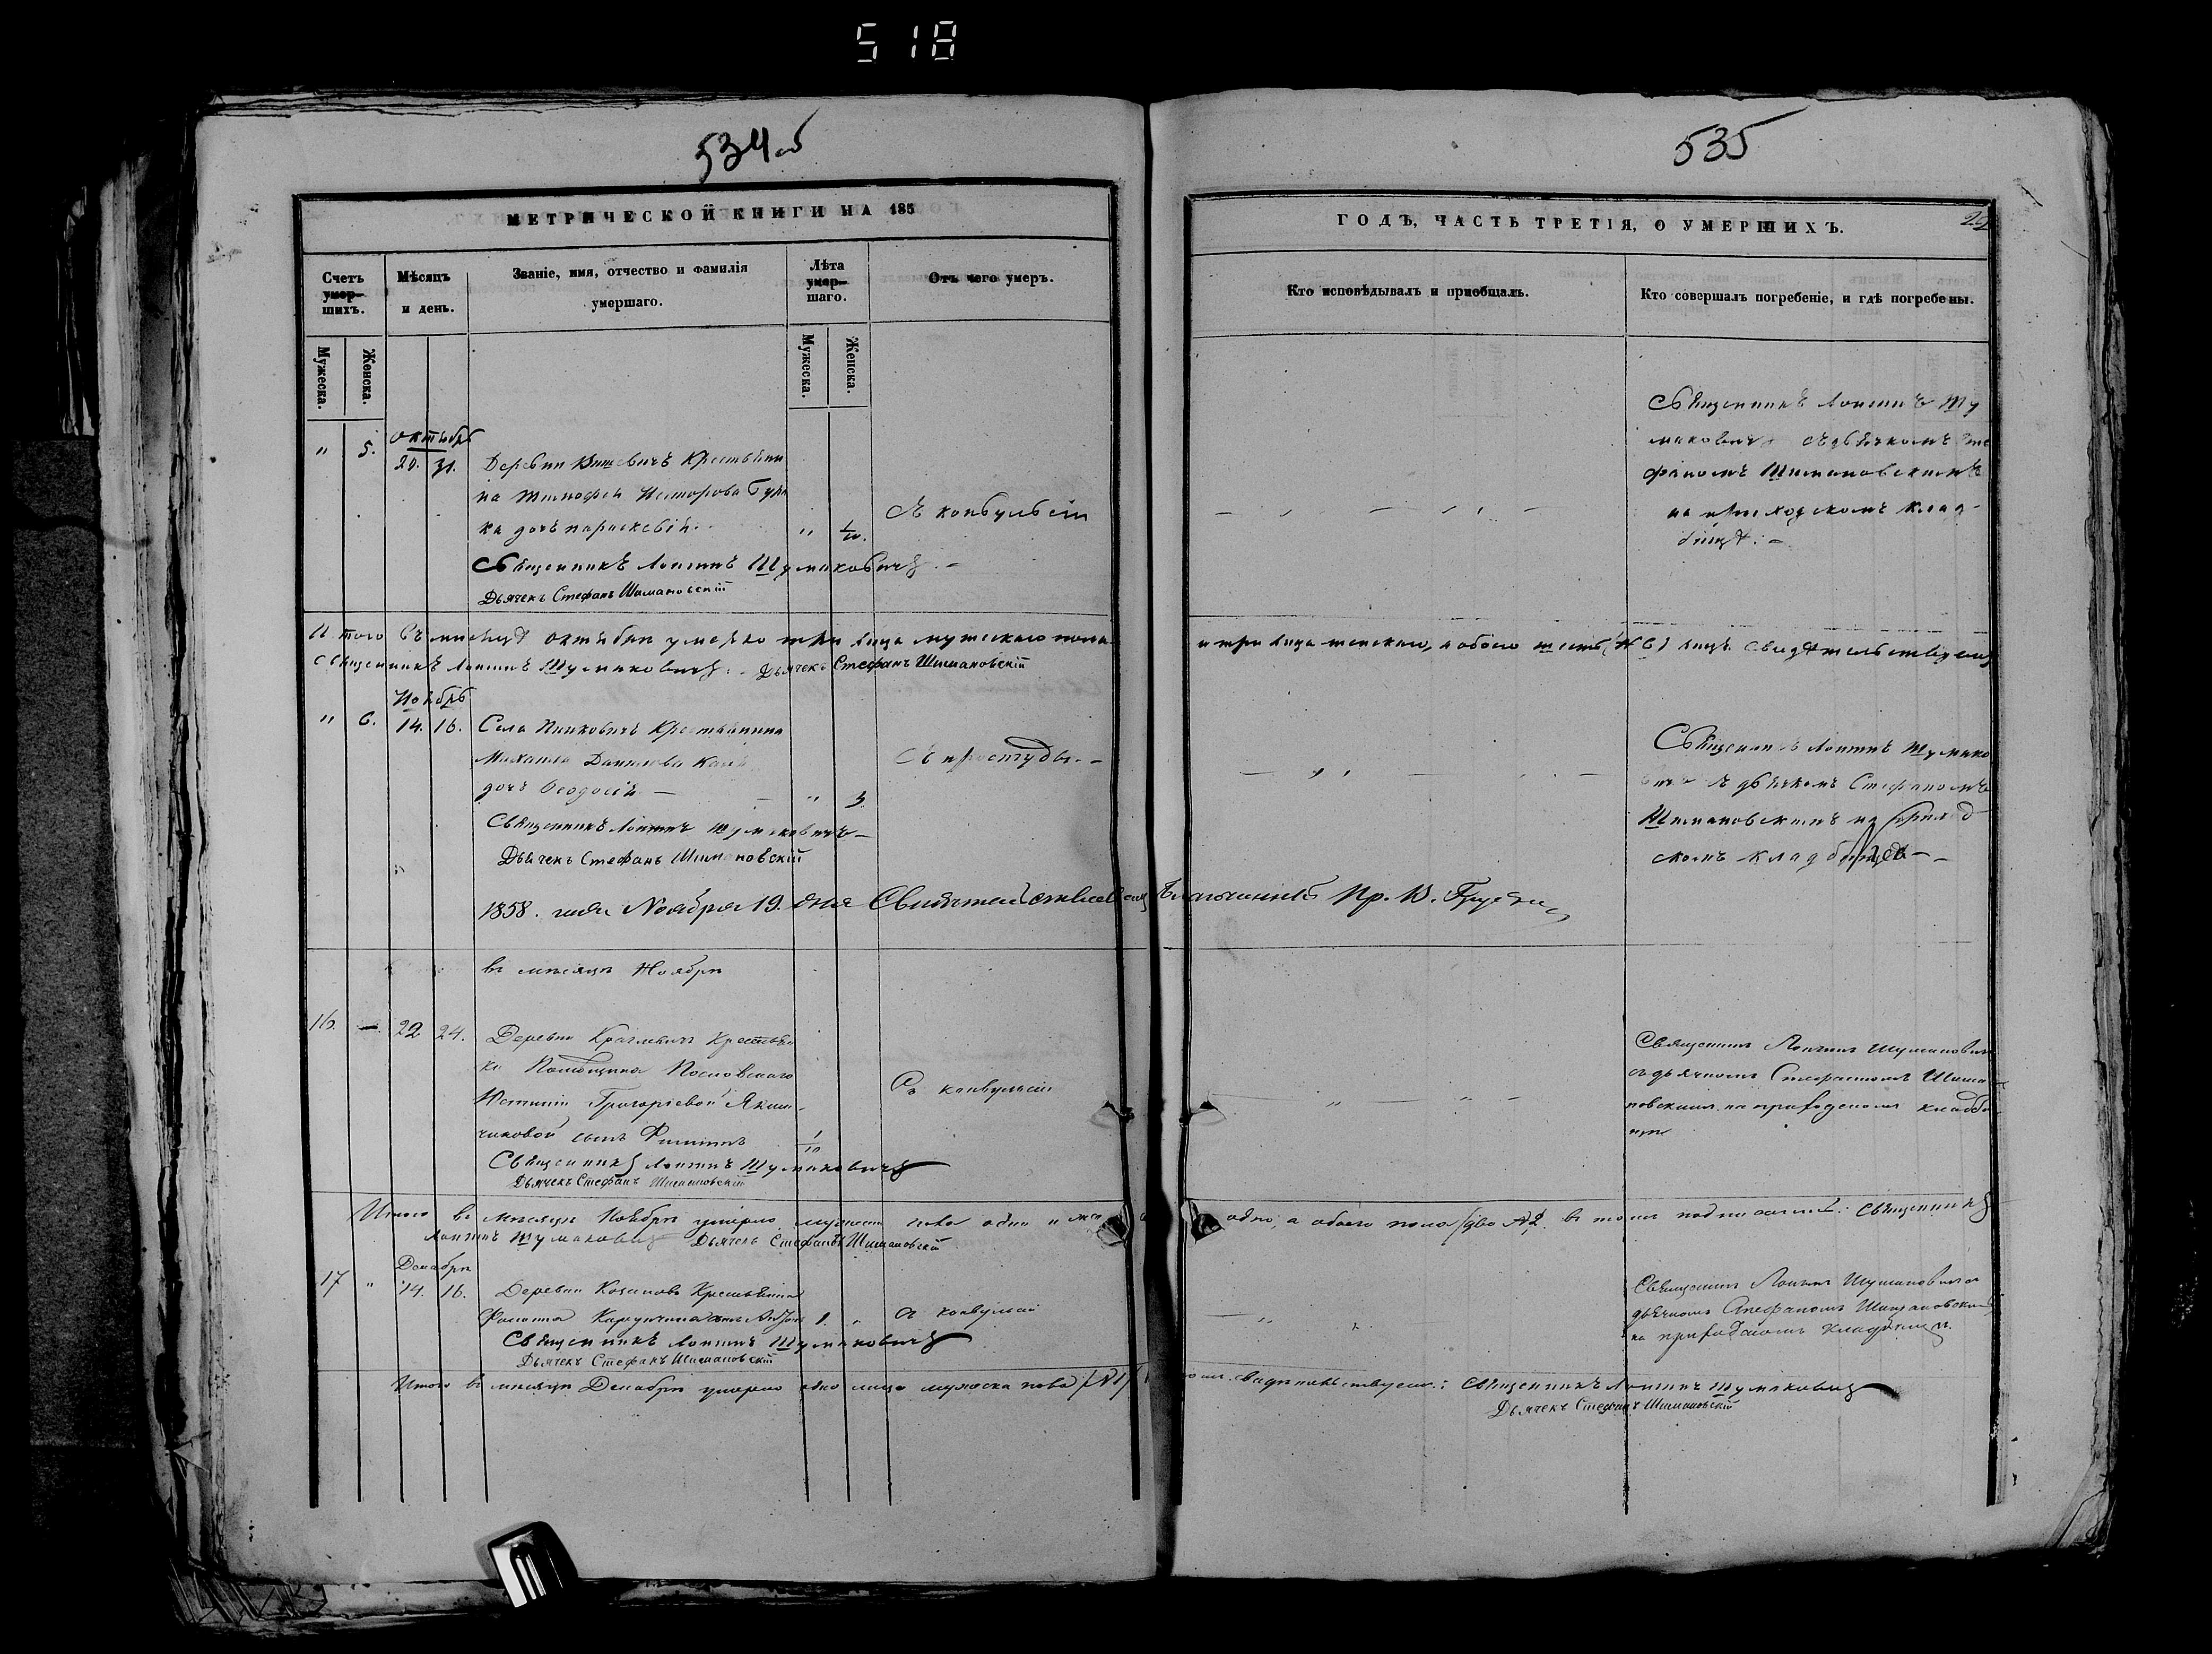 518
534 об
535
МЕТРИЧЕСКОЙ КНИГИ НА 185
ГОДЪ, ЧАСТЬ ТРЕТІЯ, О УМЕРШИХЪ.
Счетъ умер-шихъ.
Мѣсяцъ и день.
Званіе, имя, отчество и фамилія умершаго.
Лѣта умер-шаго.
Отъ чего умеръ.
Кто исповѣдывалъ и приобщалъ.
Кто совершалъ погребеніе, и гдѣ погребены.
Мужеска.
Женска.
Мужеска.
Женска.
октябрь
" 5. 29. 31. Деревни Вишевичъ Крестьяни
на Тимофея Несторова
ка дочь параскевія.
" 1/10.
Съ конвульсіи
Священникъ Лонгинъ Шумаковичъ
Дьячекъ Стефанъ Шимановскій
Священникъ Лонгинъ Шу
маковичъ съ дьячкомъ Сте
фаномъ Шимановскимъ
на приходскомъ клад-
бищѣ:
Итого въ мѣсяцѣ октябрѣ умерло три лица мужескаго пола
и три лица женскаго, а обоего шесть (№ 6) лицъ свидѣтельствуемъ
Священникъ Лонгинъ Шумаковичъ: Дьячекъ Стефанъ Шимановскій
Ноябрь
" 6. 14. 16. Села Пинковичъ Крестьянина
Михаила Данилова
дочь Ѳеодосія
" 3.
Съ простуды.
Священникъ Лонгинъ Шумаковичъ
Дьячекъ Стефанъ Шимановскій
Священникъ Лонгинъ Шумако
вичъ съ дьячкомъ Стефаномъ
Шимановскимъ на приход
скомъ кладбищѣ
1858. года Ноября 19. дня Свидѣтельствовалъ Благочинный Пр. В.
въ мѣсяцѣ Ноябрѣ
16. – 22 24. Деревни Крестьян
ки Помѣщика
Юстиніи Григоріевой Яким-
чиковой сынъ Филиппъ 1/10
Съ конвульсіи
Священникъ Лонгинъ Шумаковичъ
Дьячекъ Стефанъ Шимановскій
Священникъ Лонгинъ Шумаковичъ
съ дьячкомъ Стефаномъ Шима
новскимъ на приходскомъ кладби
щѣ
Итого въ мѣсяцѣ Ноябрѣ умерло мужеска пола одно и жен
одно, а обоего пола (два №2. въ томъ подписались: Священникъ
Лонгинъ Шумаковичъ Дьячекъ Стефанъ Шимановскій
Декабрь
17 " 14. 16. Деревни Крестьянина
1. " Съ конвульсіи
Священникъ Лонгинъ Шумаковичъ
Дьячекъ Стефанъ Шимановскій
Священникъ Лонгинъ Шумаковичъ
дьячкомъ Стефаномъ Шимановским
на приходскомъ кладбищѣ.
Итого въ мѣсяцѣ Декабрѣ умерло одно лице мужеска пола (№1)
свидѣтельствуемъ: Священникъ Лонгинъ Шумаковичъ
Дьячекъ Стефанъ Шимановскій